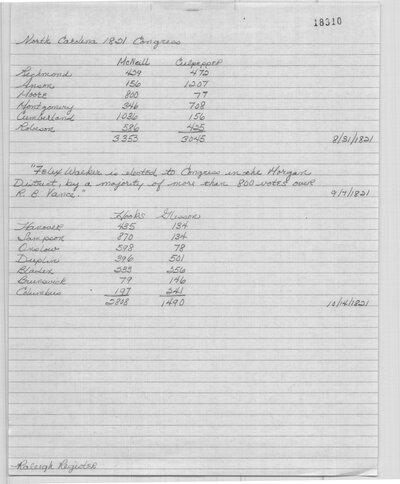 18310
North Carolina 1821 Congress
McNeill Culpepper
Richmond 429 472
Anson 156 1207
Moore 800 77
Montgomery 346 708
Cumberland 1036 156
Robeson 586 425
3353 3045 8/31/1821
"Felix Walker is elected to Congress in the Morgan
District, by a majority of more than 800 votes over
R. B. Vance." 9/7/1821
Hooks Glisson
Hanover 435 134
Sampson 870 134
Onslow 598 78
Duplin 396 501
Bladen 233 256
Brunswick 79 146
Columbus 197 241
2808 1490 10/14/1821
Raleigh Register